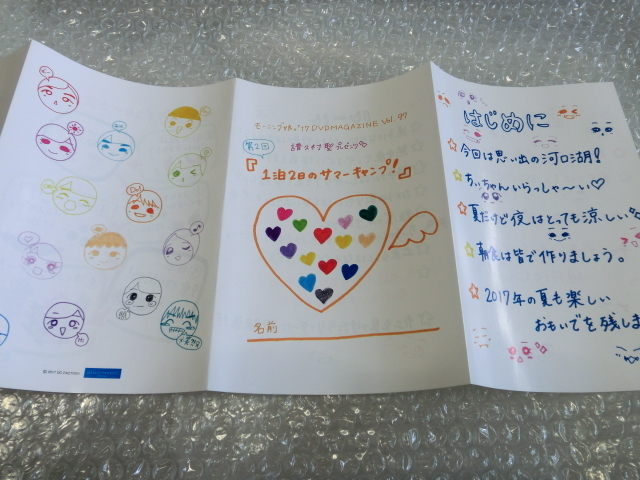 モーニング娘。'17 DVDMAGAZINE Vol.97
第2回
譜久村聖
『1泊2日のサマーキャンプ!』
名前
はじめに
☆今回は思い出の河口湖!
☆ちぃちゃんいらっしゃ〜い♡
☆夏だけど夜はとっても涼しい
☆朝食は皆で作りましょう。
☆2017年の夏も楽しい
おもいでを残しま